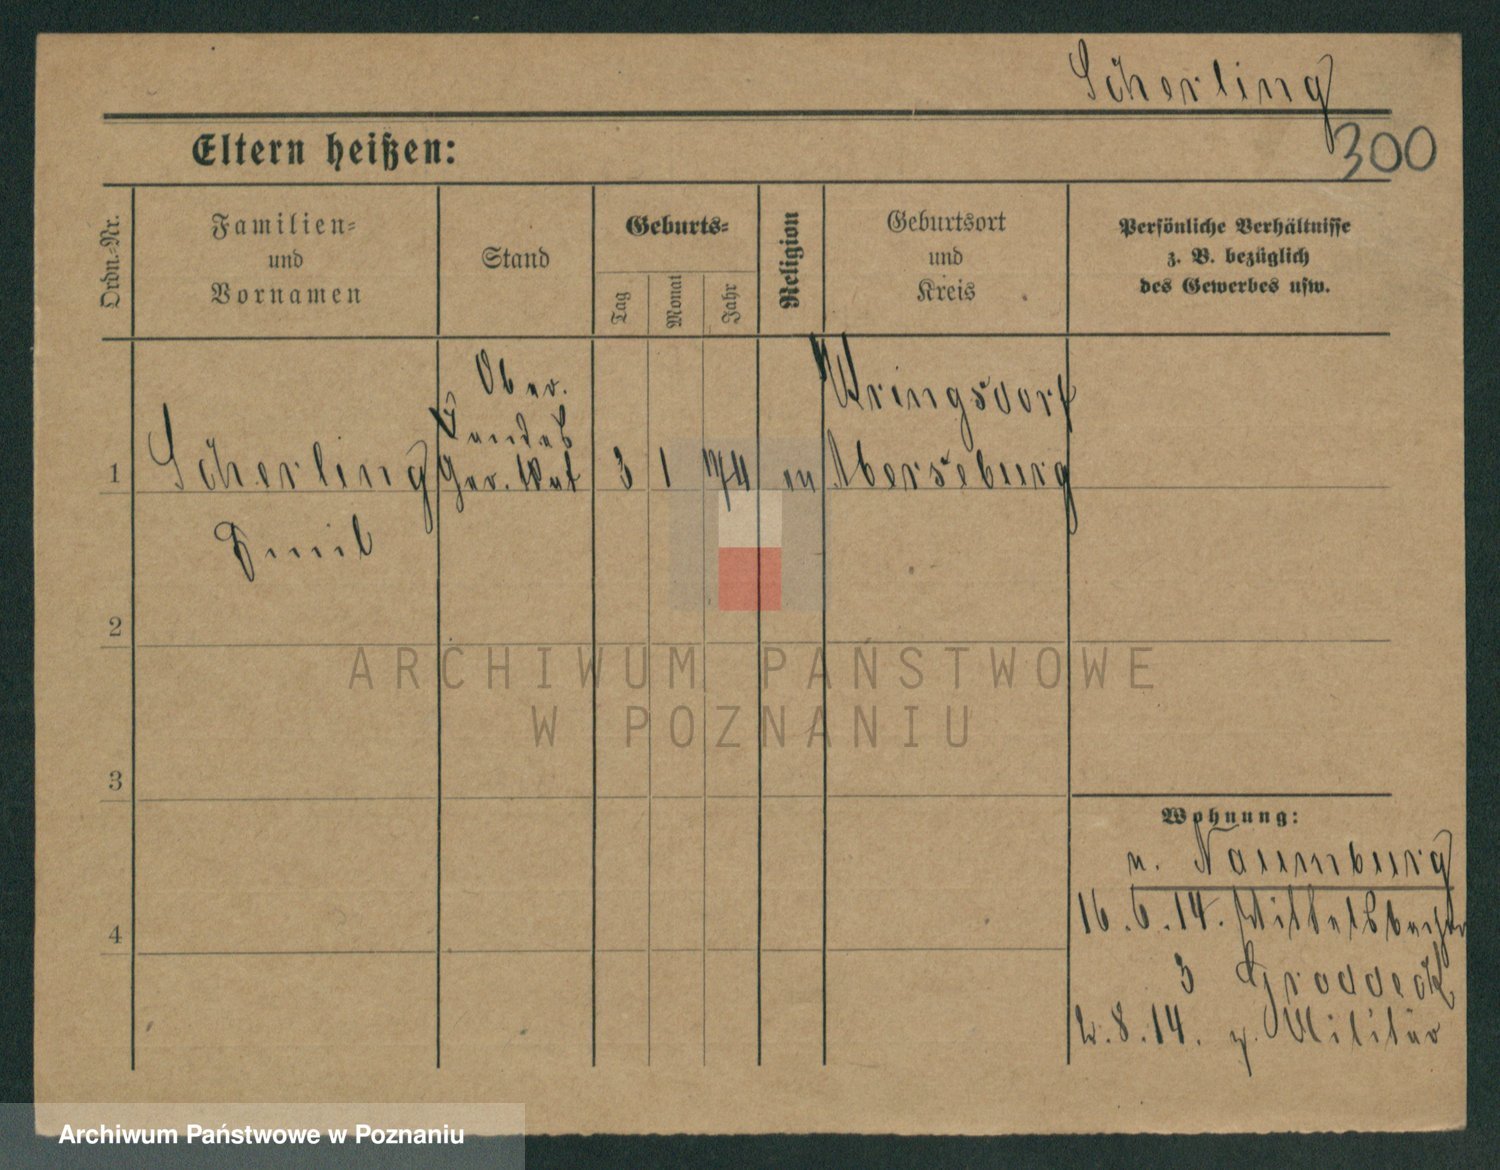 Scherling
300
Eltern heißen:
Ordn.-Nr.
Familien-
und
Vornamen
Stand
Geburts-
Tag
Monat
Jahr
Religion
Geburtsort
und
Kreis
Persönliche Verhältnisse
z. B. bezüglich
des Gewerbes usw.
1
Scherling
Emil
Ober.
Landes
Ger. Rat
3 1 74
ev
Merseburg
2
3
4
Wohnung:
n. Naumburg
16.6.14.
3 Groddeck
2.8.14. z. Militär
ARCHIWUM PAŃSTWOWE
W POZNANIU
Archiwum Państwowe w Poznaniu